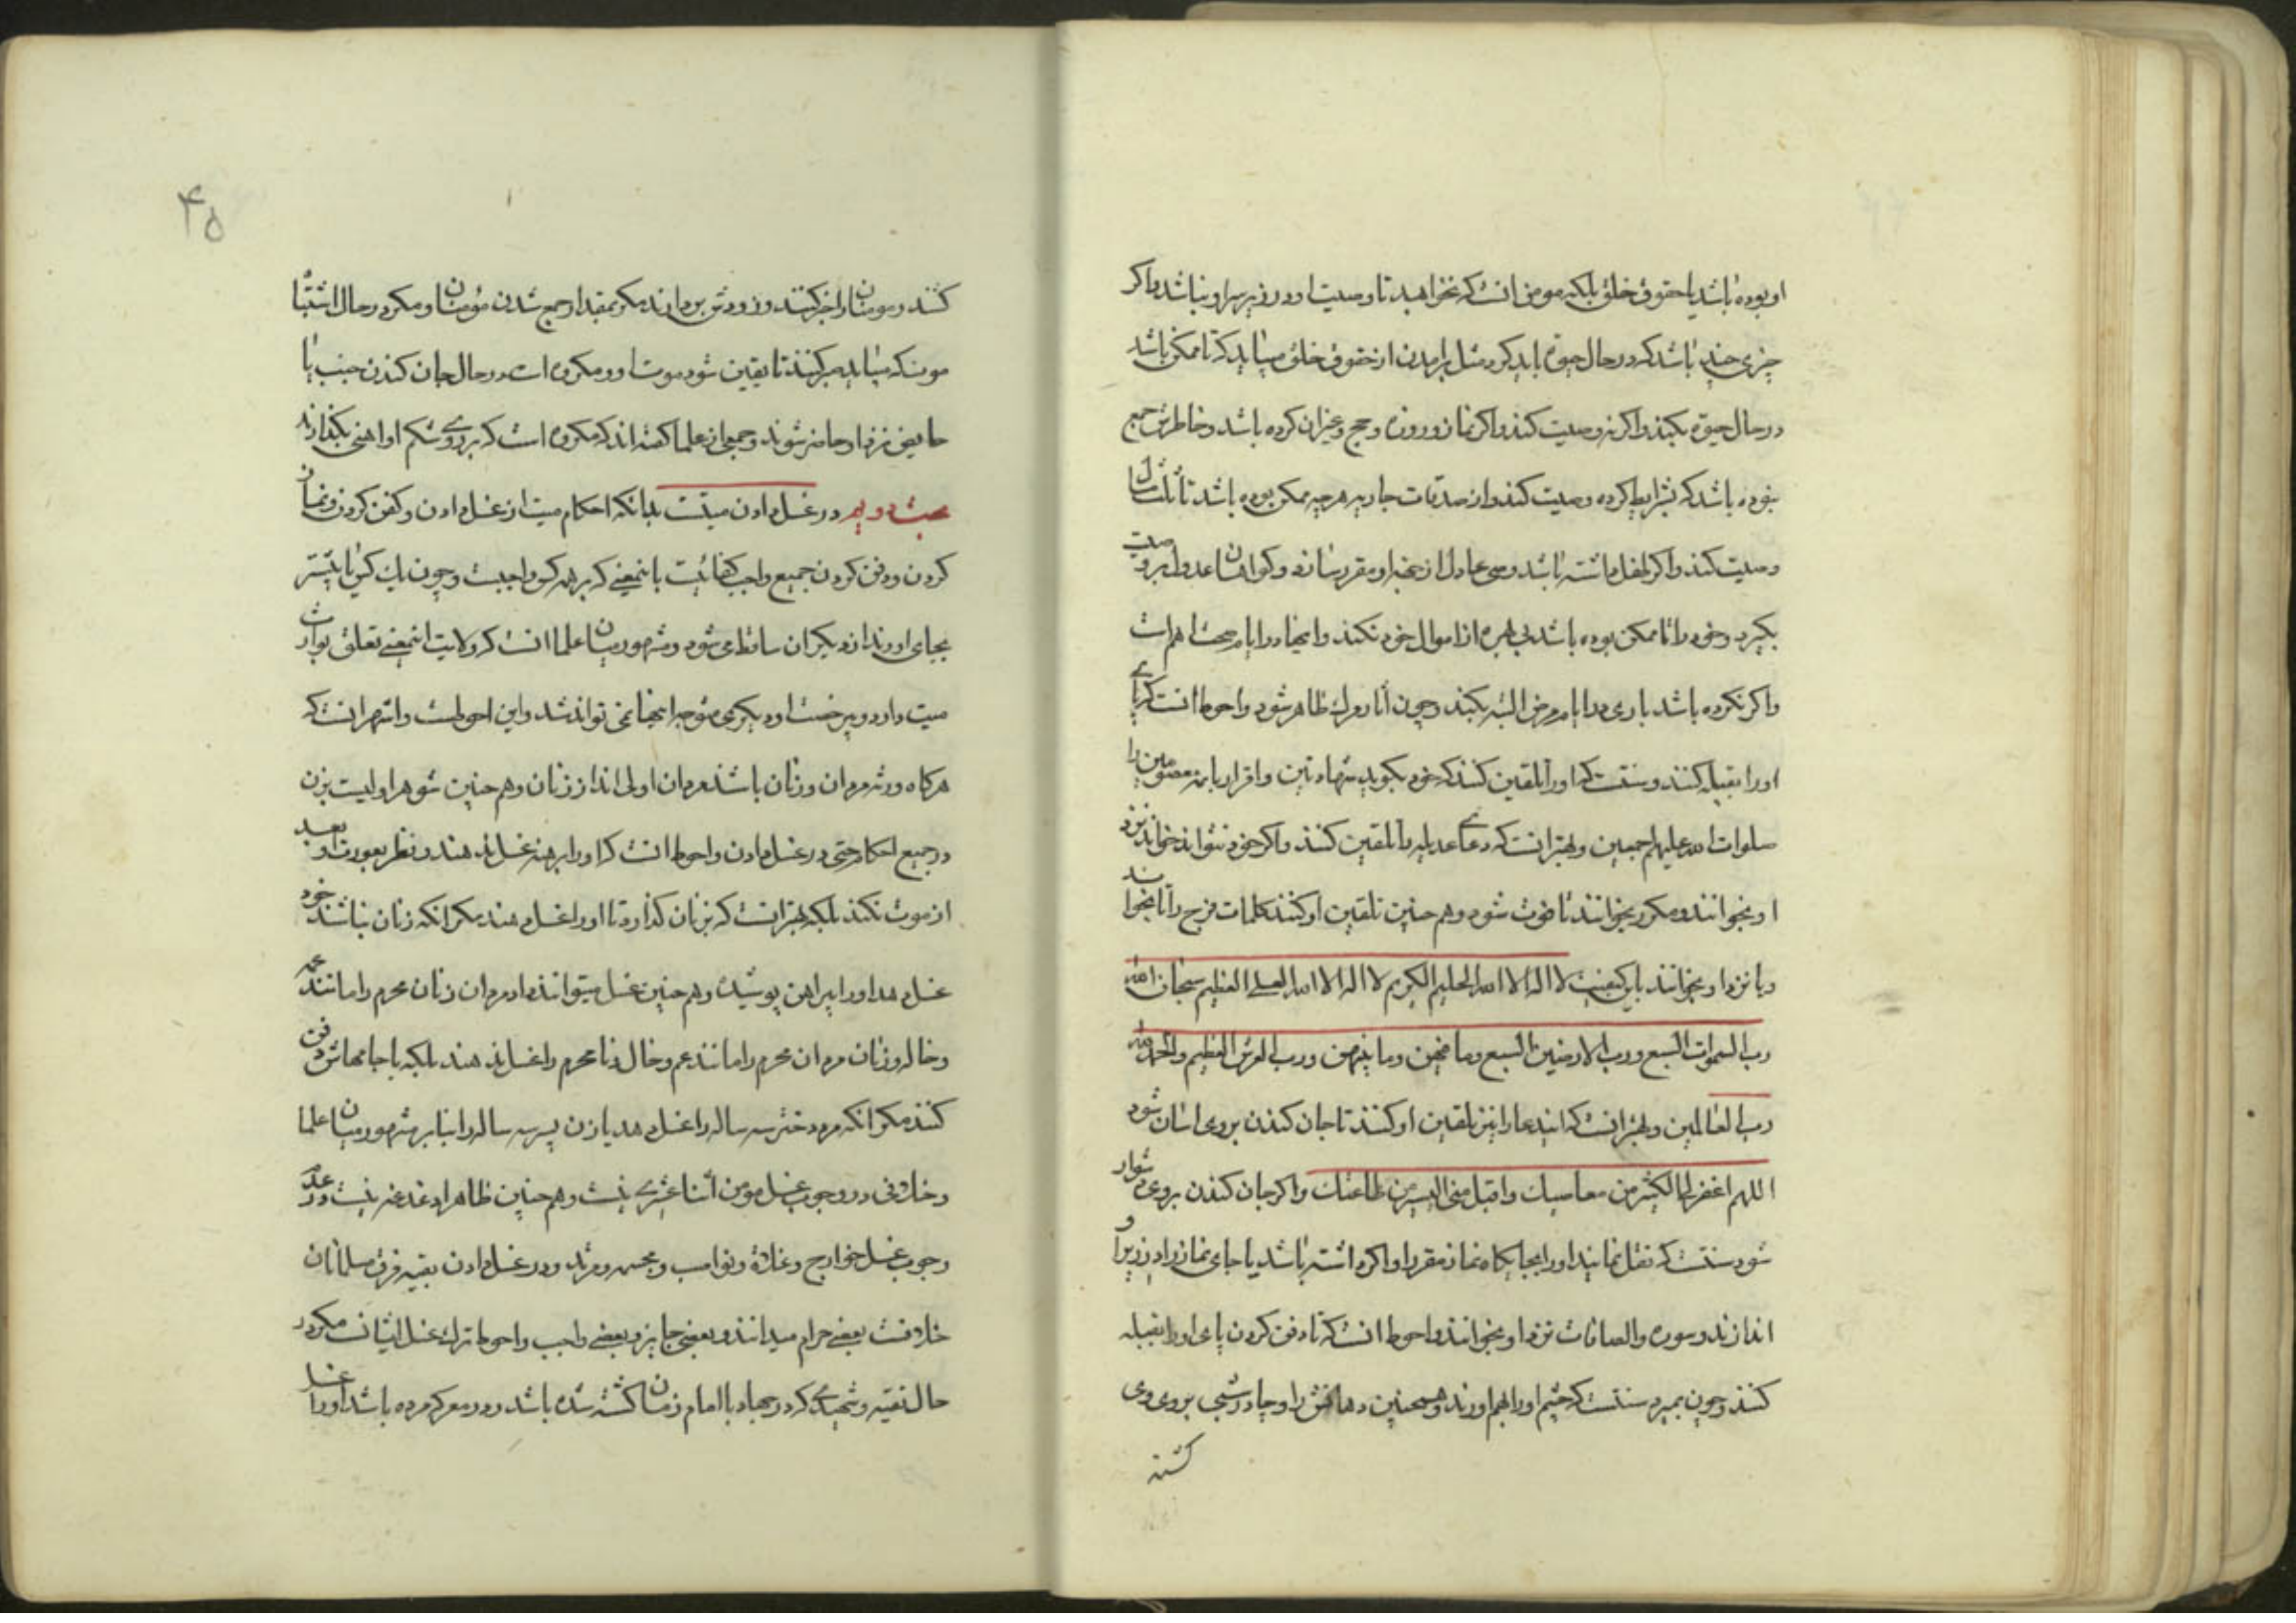 او بوده باشد یا حقوق خلق بلکه مومن انست که نخوابد تا وصیت او در زیر سر او نباشد و اکر
چیزی چند باشد که در حال حیوة باید کرد مثل برامدن از حقوق خلق میباید که تا ممکن باشد
در حال حیوة بکند و اکر نه وصیت کند و اکر نماز و روزه و حج و غیر ان کرده باشد و خاطرش جمع
نبوده باشد که بشرایط کرده وصیت کند و از صدقات جاریه هر چه ممکن بوده باشد تا ثلث مال
وصیت کند و اکر طفل داشته باشد وصی عادل از جهة او مقرر سازد و کواهان عدول بر وصیت
بکیرد و خود را تا ممکن بوده باشد بی بهره از اموال خود نکند و اینها در ایام صحت اهم است
و اکر نکرده باشد باری در ایام مرض البته بکند و چون آثار مرك ظاهر شود و احوط انست که پای
او را بقبله کنند و سنتست که او را تلقین کنند که خود بکوید شهادتین و اقرار بائمه معصومین را
صلوات الله علیهم اجمعین و بهتر انست که دعای عدیله را تلقین کنند و اکر خود نتواند خواند نزد
او بخوانند و مکرر بخوانند تا فوت شود و هم چنین تلقین او کنند کلمات فرج را تا بخواند
و یا نزد او بخوانند باین کیفیت لا اله الا الله الحلیم الکریم لا اله الا الله العلی العظیم سبحان الله
رب السموات السبع و رب الارضین السبع و ما فیهن و ما بینهن و رب العرش العظیم و الحمد لله
رب العالمین و بهتر انست که ایندعا را نیز تلقین او کنند تا جان کندن بروی اسان شود
اللهم اغفر لی الکثیر من معاصیك و اقبل منی الیسیر من طاعتك و اکر جان کندن بروی دشوار
شود سنتست که نقل نمایند او را بجایکاه نماز مقرر او اکر داشته باشد یا جای نماز را در زیر او
اندازند و سوره والصافات نزد او بخوانند و احوط انست که تا دفن کردن پای او را بقبله
کنند و چون بمیرد سنتست که چشم او را بهم اورند و همچنین دهانش را و چادر شبی بروی وی
کشند
۴۵
کشند و مومنان را خبر کنند و زودش بردارند مکر بمقدار جمع شدن مؤمنان و مکر در حال اشتباه
موت که میباید صبر کنند تا یقین شود موت او و مکروه است در حال جان کندن جنب یا
حایض نزد او حاضر شوند و جمعی از علما کفته اند که مکروه است که بر روی شکم او اهنی بکذارند
مبحث دویم در غسل دادن میتست بدانکه احکام میت از غسل دادن و کفن کردن و نماز
کردن و دفن کردن جمیع واجب کفائیست باینمعنی که بر همه کس واجبست و چون یك کس یا بیشتر
بجای اورند از دیکران ساقط می شود و مشهور میان علما انست که ولایت اینمعنی تعلق بوارث
میت دارد و بی رخصت او دیکری متوجه اینها نمی تواند شد و این احوطست و اشهر انست که
هرکاه ورثه مردان و زنان باشند مردان اولی اند از زنان و هم چنین شوهر اولیست بزن
در جمیع احکام حتی در غسل دادن و احوط انست که او را برهنه غسل ندهند و نظر بعورت او بعد
از موت نکند بلکه بهتر انست که بزنان کذارد تا او را غسل دهند مکر انکه زنان نباشند خود
غسل دهد او را پیراهن پوشیده و هم چنین غسل میتوانند داد مردان زنان محرم را مانند عمه
و خاله و زنان مردان محرم را مانند عم و خال و نا محرم را غسل ندهند بلکه با جامهاش دفن
کنند مکر انکه مرد دختر سه ساله را غسل دهد یا زن پسر سه ساله را بنابر مشهور میان علما
و خلافی در وجوب غسل مومن اثنا عشری نیست و هم چنین ظاهرا دغدغه نیست در عدم
وجوب غسل خوارج و غلاة و نواصب و مجسمه و مرتد و در غسل دادن بقیه فرق مسلمانان
خلافست بعضی حرام میدانند و بعضی جایز و بعضی واجب و احوط ترك غسل ایشانست مکر در
حال تقیه و شهیدی که در جهاد با امام زمان کشته شده باشد و در معرکه مرده باشد او را غسل